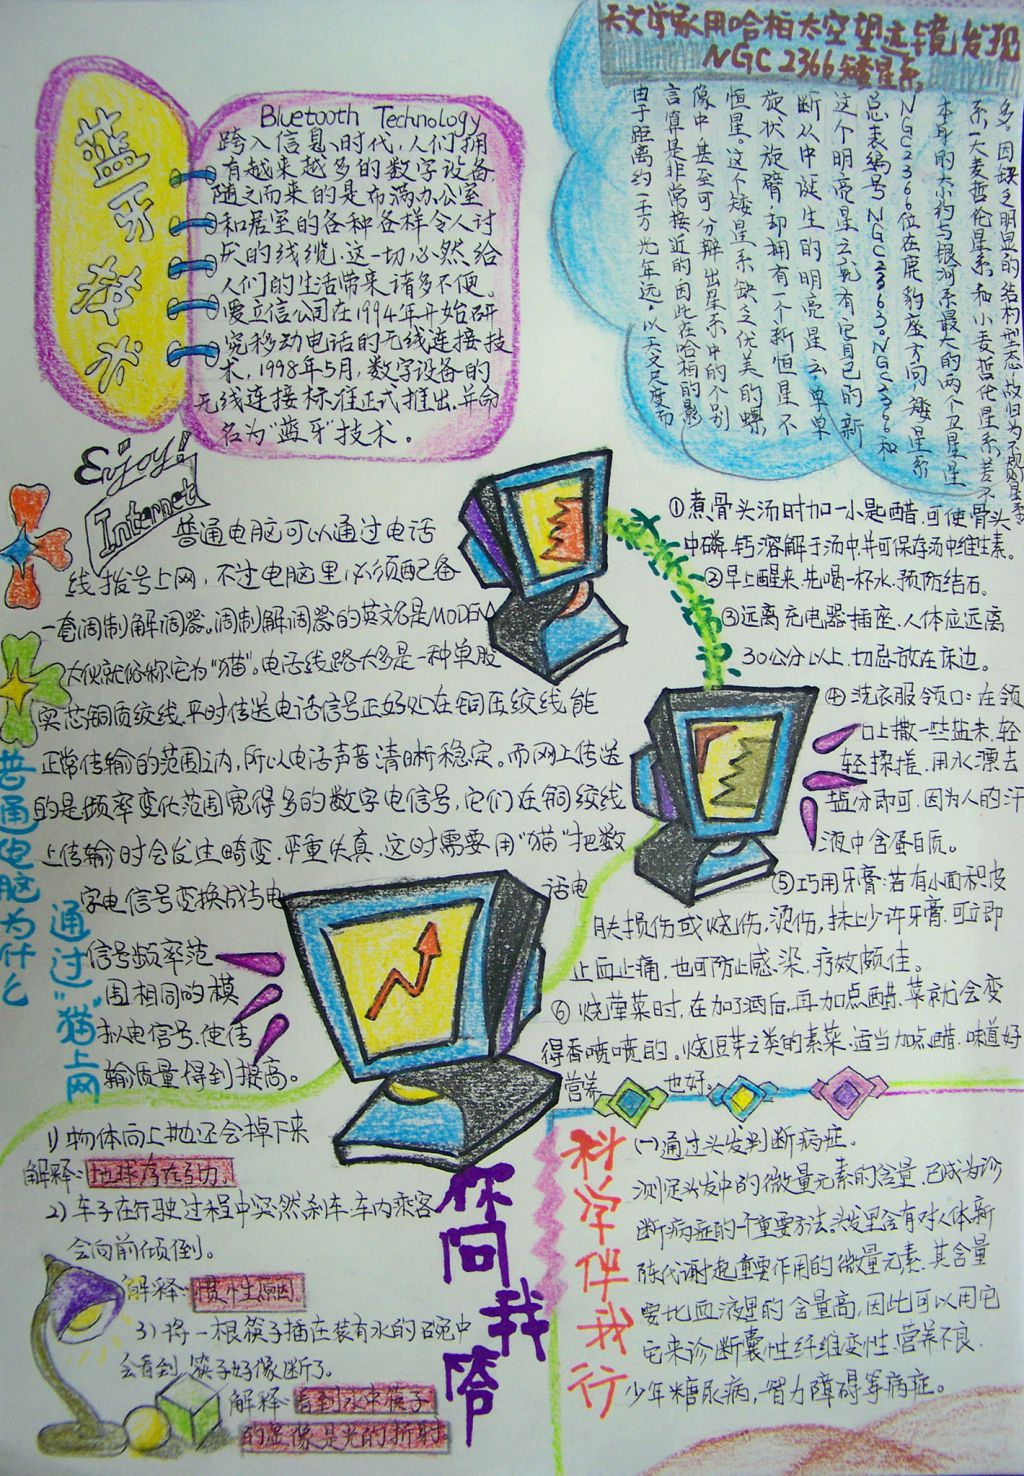 蓝牙技术
Bluetooth Technology
跨入信息时代，人们拥
有越来越多的数字设备
随之而来的是布满办公室
和居室的各种各样令人讨
厌的线缆.这一切必然给
人们的生活带来诸多不便。
爱立信公司在1994年开始研
究移动电话的无线连接技
术，1998年5月，数字设备的
无线连接标准正式推出.并命
名为"蓝牙"技术。
天文学家用哈柏太空望远镜发现
NGC2366矮星系
多。因缺乏明显的结构型态，故归为不规则星系
系一大麦哲伦星系和小麦哲伦星系差不
本身的大小约与银河系最大的两个卫星星
NGC2366位在鹿豹座方向.矮星系
总表编号NGC2363。NGC2366和
这个明亮星云就有它自己的新
断从中诞生的明亮星云.单单
旋状旋臂.却拥有一个新恒星不
恒星。这个矮星系缺乏优美的螺
像中甚至可分辨出星系中的个别
言算是非常接近的.因此在哈柏的影
由于距离约一千万光年远，以天文尺度而
Enjoy!
Internet
普通电脑可以通过电话
线拨号上网，不过电脑里必须配备
一套调制解调器。调制解调器的英文名是MODEM
大伙就俗称它为"猫"。电话线路大多是一种单股
实芯铜质绞线.平时传送电话信号正好处在铜压绞线能
正常传输的范围之内，所以电话声音清晰稳定。而网上传送
的是频率变化范围宽得多的数字电信号，它们在铜绞线
上传输时会发生畸变.严重失真.这时需要用"猫"把数
字电信号变换成与电话电
信号频率范
围相同的模
拟电信号.使传
输质量得到提高。
普通电脑为什么
通过"猫"上网
①煮骨头汤时加一小匙醋.可使骨头
中磷.钙溶解于汤中.并可保存汤中维生素。
②早上醒来.先喝一杯水.预防结石。
③远离充电器插座.人体应远离
30公分以上.切忌放在床边。
④洗衣服领口：在领
口上撒一些盐末.轻
轻揉搓.用水漂去
盐分即可.因为人的汗
液中含蛋白质。
⑤巧用牙膏：若有小面积皮
肤损伤或烧伤，烫伤，抹上少许牙膏.可立即
止血止痛.也可防止感染.疗效颇佳。
⑥烧荤菜时.在加了酒后.再加点醋.菜就会变
得香喷喷的。烧豆芽之类的素菜.适当加点醋.味道好
营养也好。
1)物体向上抛还会掉下来
解释：地球存在引力.
2)车子在行驶过程中突然刹车.车内乘客
会向前倾倒。
解释：惯性原因.
3)将一根筷子插在装有水的碗中
会看到筷子好像断了。
解释：看到水中筷子
的虚像是光的折射
你问我答
科学伴我行
(一)通过头发判断病症。
测定头发中的微量元素的含量.已成为诊
断病症的一个重要方法。头发里含有对人体新
陈代谢起重要作用的微量元素.其含量
要比血液里的含量高，因此可以用它
它来诊断囊性纤维变性.营养不良.
少年糖尿病，智力障碍等病症。